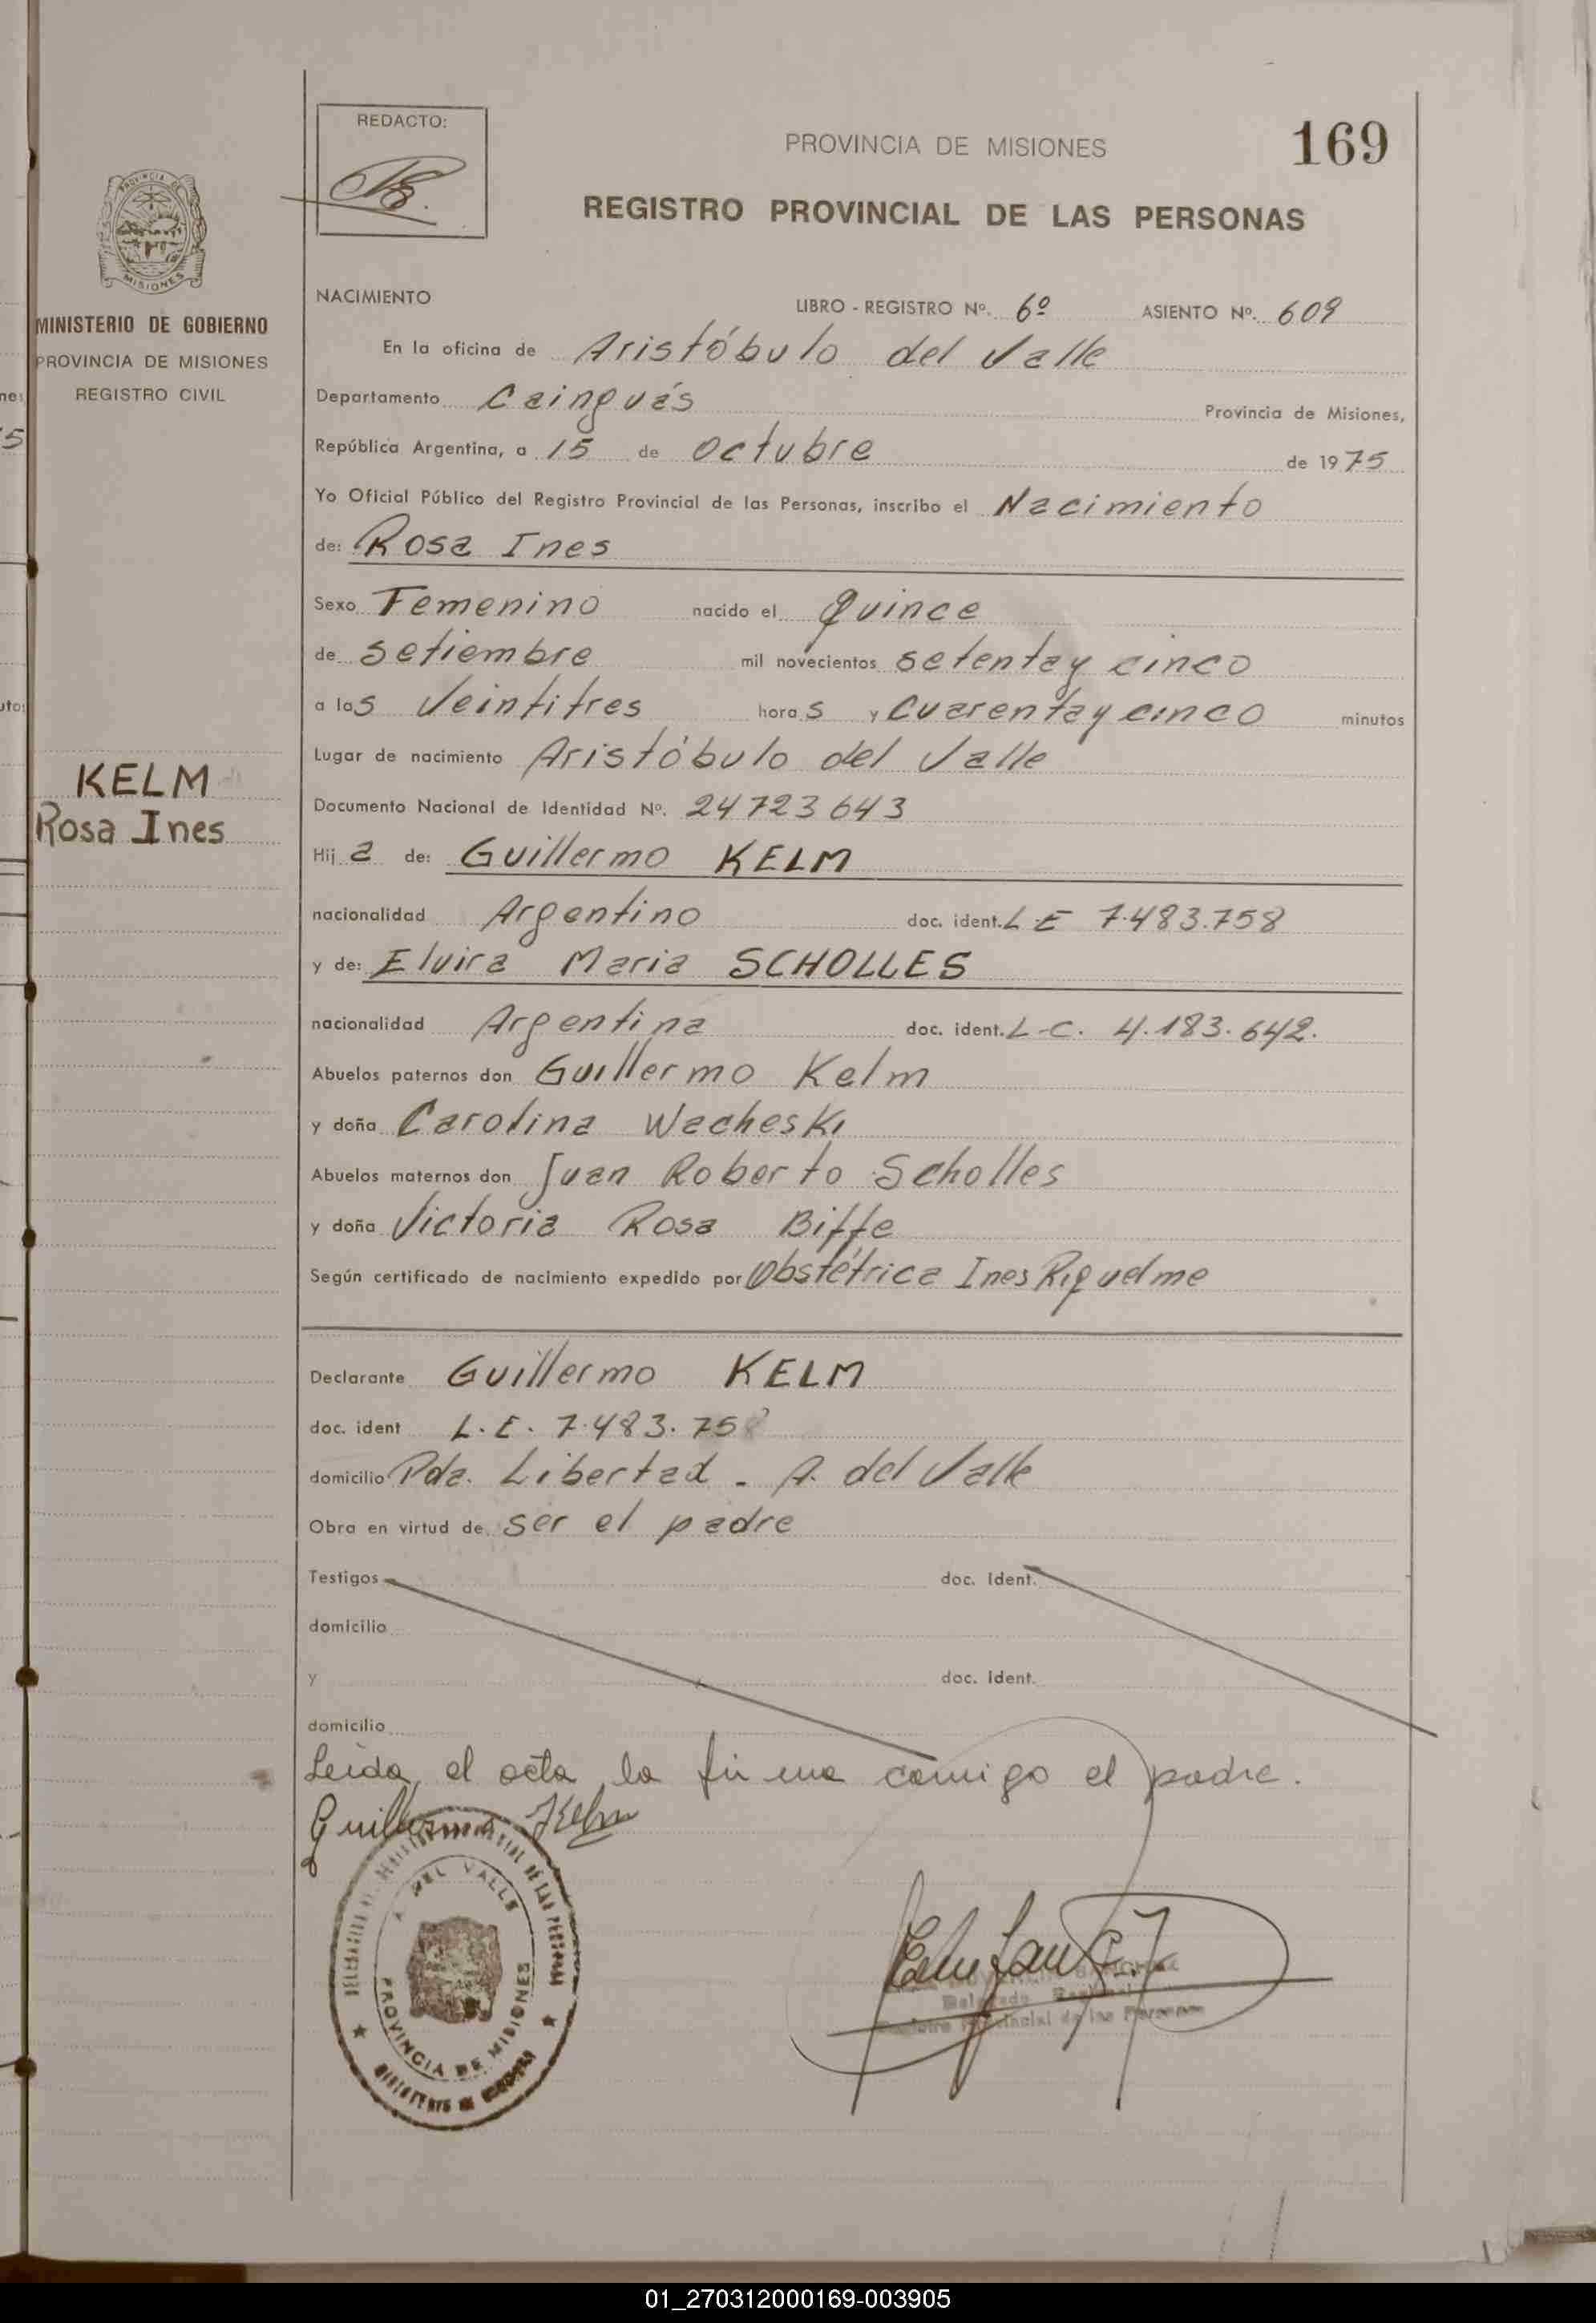 REDACTO:
PROVINCIA DE MISIONES
169
REGISTRO PROVINCIAL DE LAS PERSONAS
PROVINCIA DE
MISIONES
MINISTERIO DE GOBIERNO
PROVINCIA DE MISIONES
REGISTRO CIVIL
KELM
Rosa Ines
NACIMIENTO
LIBRO - REGISTRO Nº. 6º ASIENTO Nº. 609
En la oficina de Aristóbulo del Valle
Departamento Cainguás Provincia de Misiones,
República Argentina, a 15 de octubre de 1975
Yo Oficial Público del Registro Provincial de las Personas, inscribo el Nacimiento
de: Rosa Ines
Sexo Femenino nacido el Quince
de setiembre mil novecientos setenta y cinco
a las Veintitres horas y Cuarenta y cinco minutos
Lugar de nacimiento Aristóbulo del Valle
Documento Nacional de Identidad Nº. 24723643
Hija de: Guillermo KELM
nacionalidad Argentino doc. ident. L.E 7.483.758
y de: Elvira Maria SCHOLLES
nacionalidad Argentina doc. ident. L.C. 4.183.642.
Abuelos paternos don Guillermo Kelm
y doña Carolina Wacheski
Abuelos maternos don Juan Roberto Scholles
y doña Victoria Rosa Biffe
Según certificado de nacimiento expedido por Obstétrica Ines Riquelme
Declarante Guillermo KELM
doc. ident L.E. 7.483.758
domicilio Pda. Libertad - A. del Valle
Obra en virtud de ser el padre
Testigos doc. ident.
domicilio
y doc. ident.
domicilio
Leida el acta la firma comigo el padre.
Guillermo Kelm
DEL VALLE
PROVINCIA DE MISIONES
Registro Provincial de las Personas
01_270312000169-003905